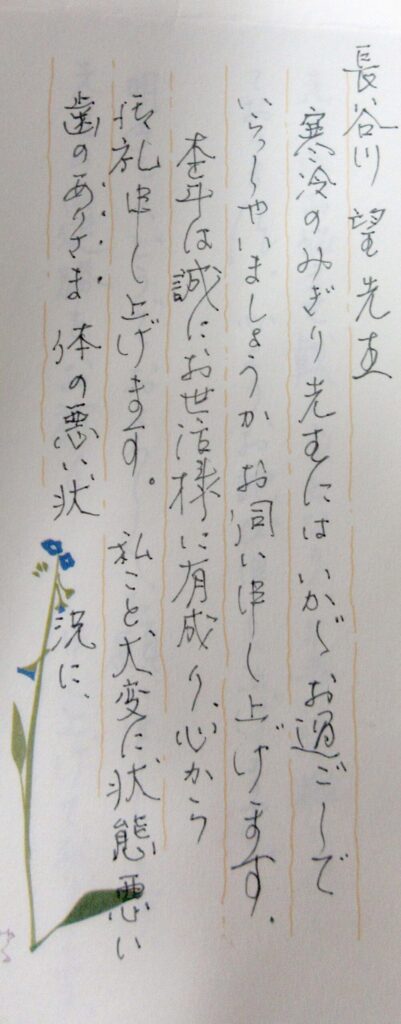 長谷川 望先生
寒冷のみぎり先生にはいかゞお過ごしで
いらっしゃいましょうかお伺い申し上げます。
本年は誠にお世話様に有成り、心から
御礼申し上げます。私こと大変に状態悪い
歯のありさま 体の悪い状況に、